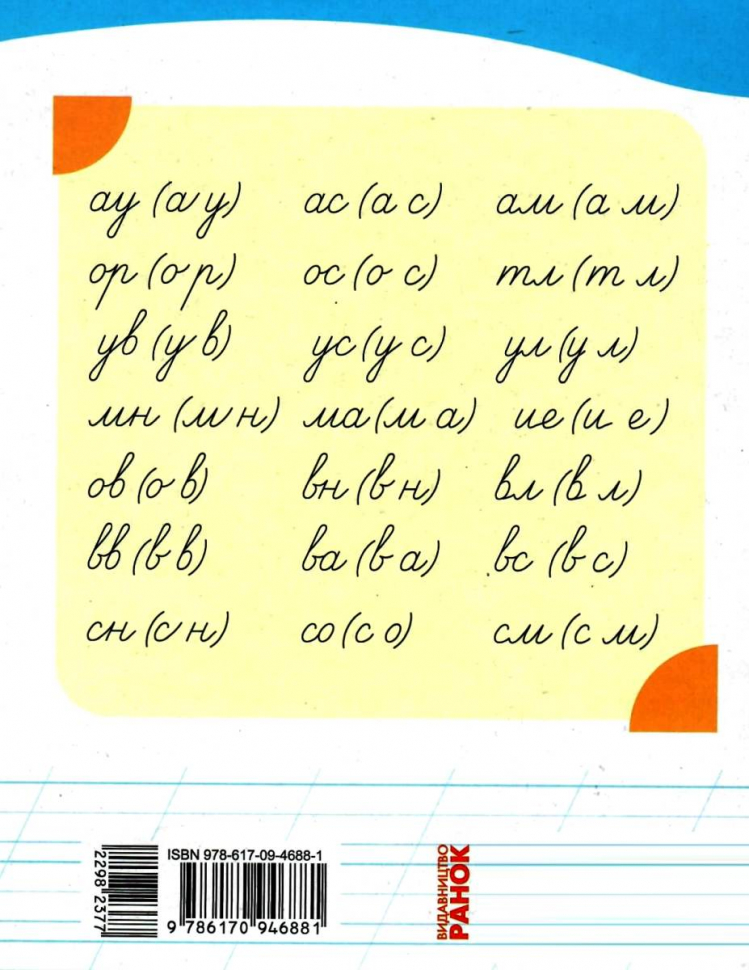 ау (а у) ас (а с) ам (а м)
ор (о р) ос (о с) тл (т л)
ув (у в) ус (у с) ул (у л)
мн (м н) ма (м а) ие (и е)
ов (о в) вн (в н) вл (в л)
вв (в в) ва (в а) вс (в с)
сн (с н) со (с о) см (с м)
2298 2377
ISBN 978-617-09-4688-1
9 786170 946881
ВИДАВНИЦТВО
РАНОК